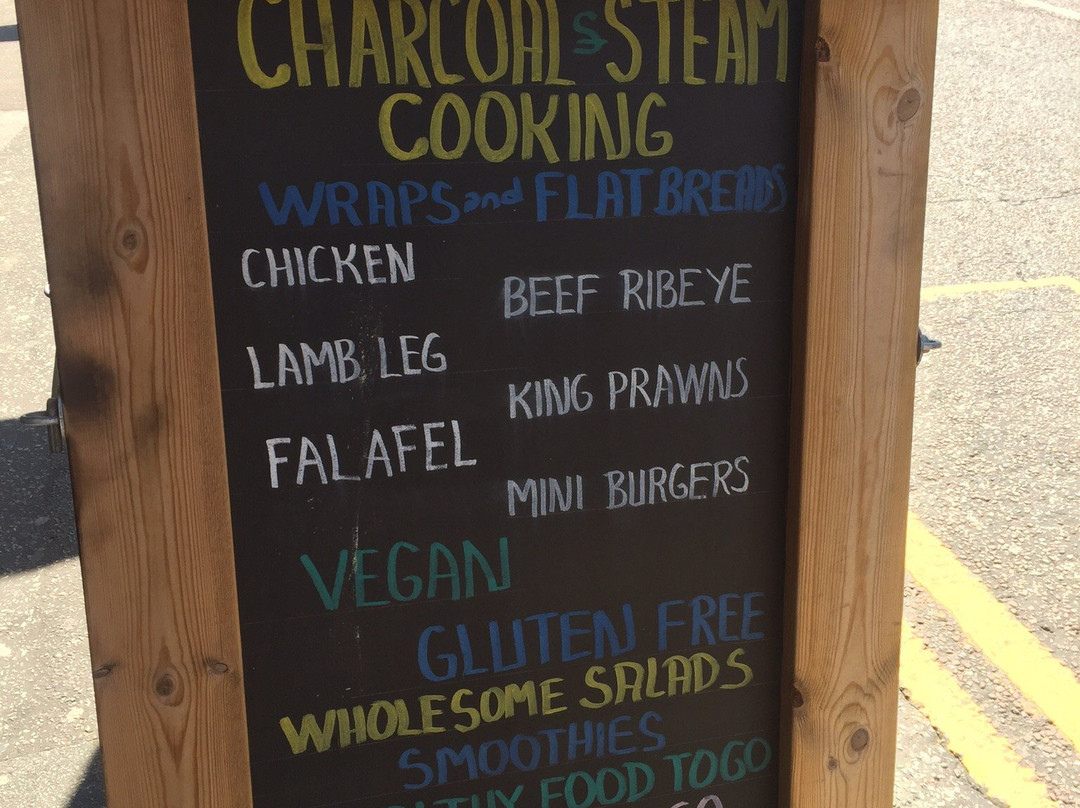 CHARCOAL & STEAM
COOKING
WRAPS and FLATBREADS
CHICKEN
BEEF RIBEYE
LAMB LEG
KING PRAWNS
FALAFEL
MINI BURGERS
VEGAN
GLUTEN FREE
WHOLESOME SALADS
SMOOTHIES
FOOD TO GO